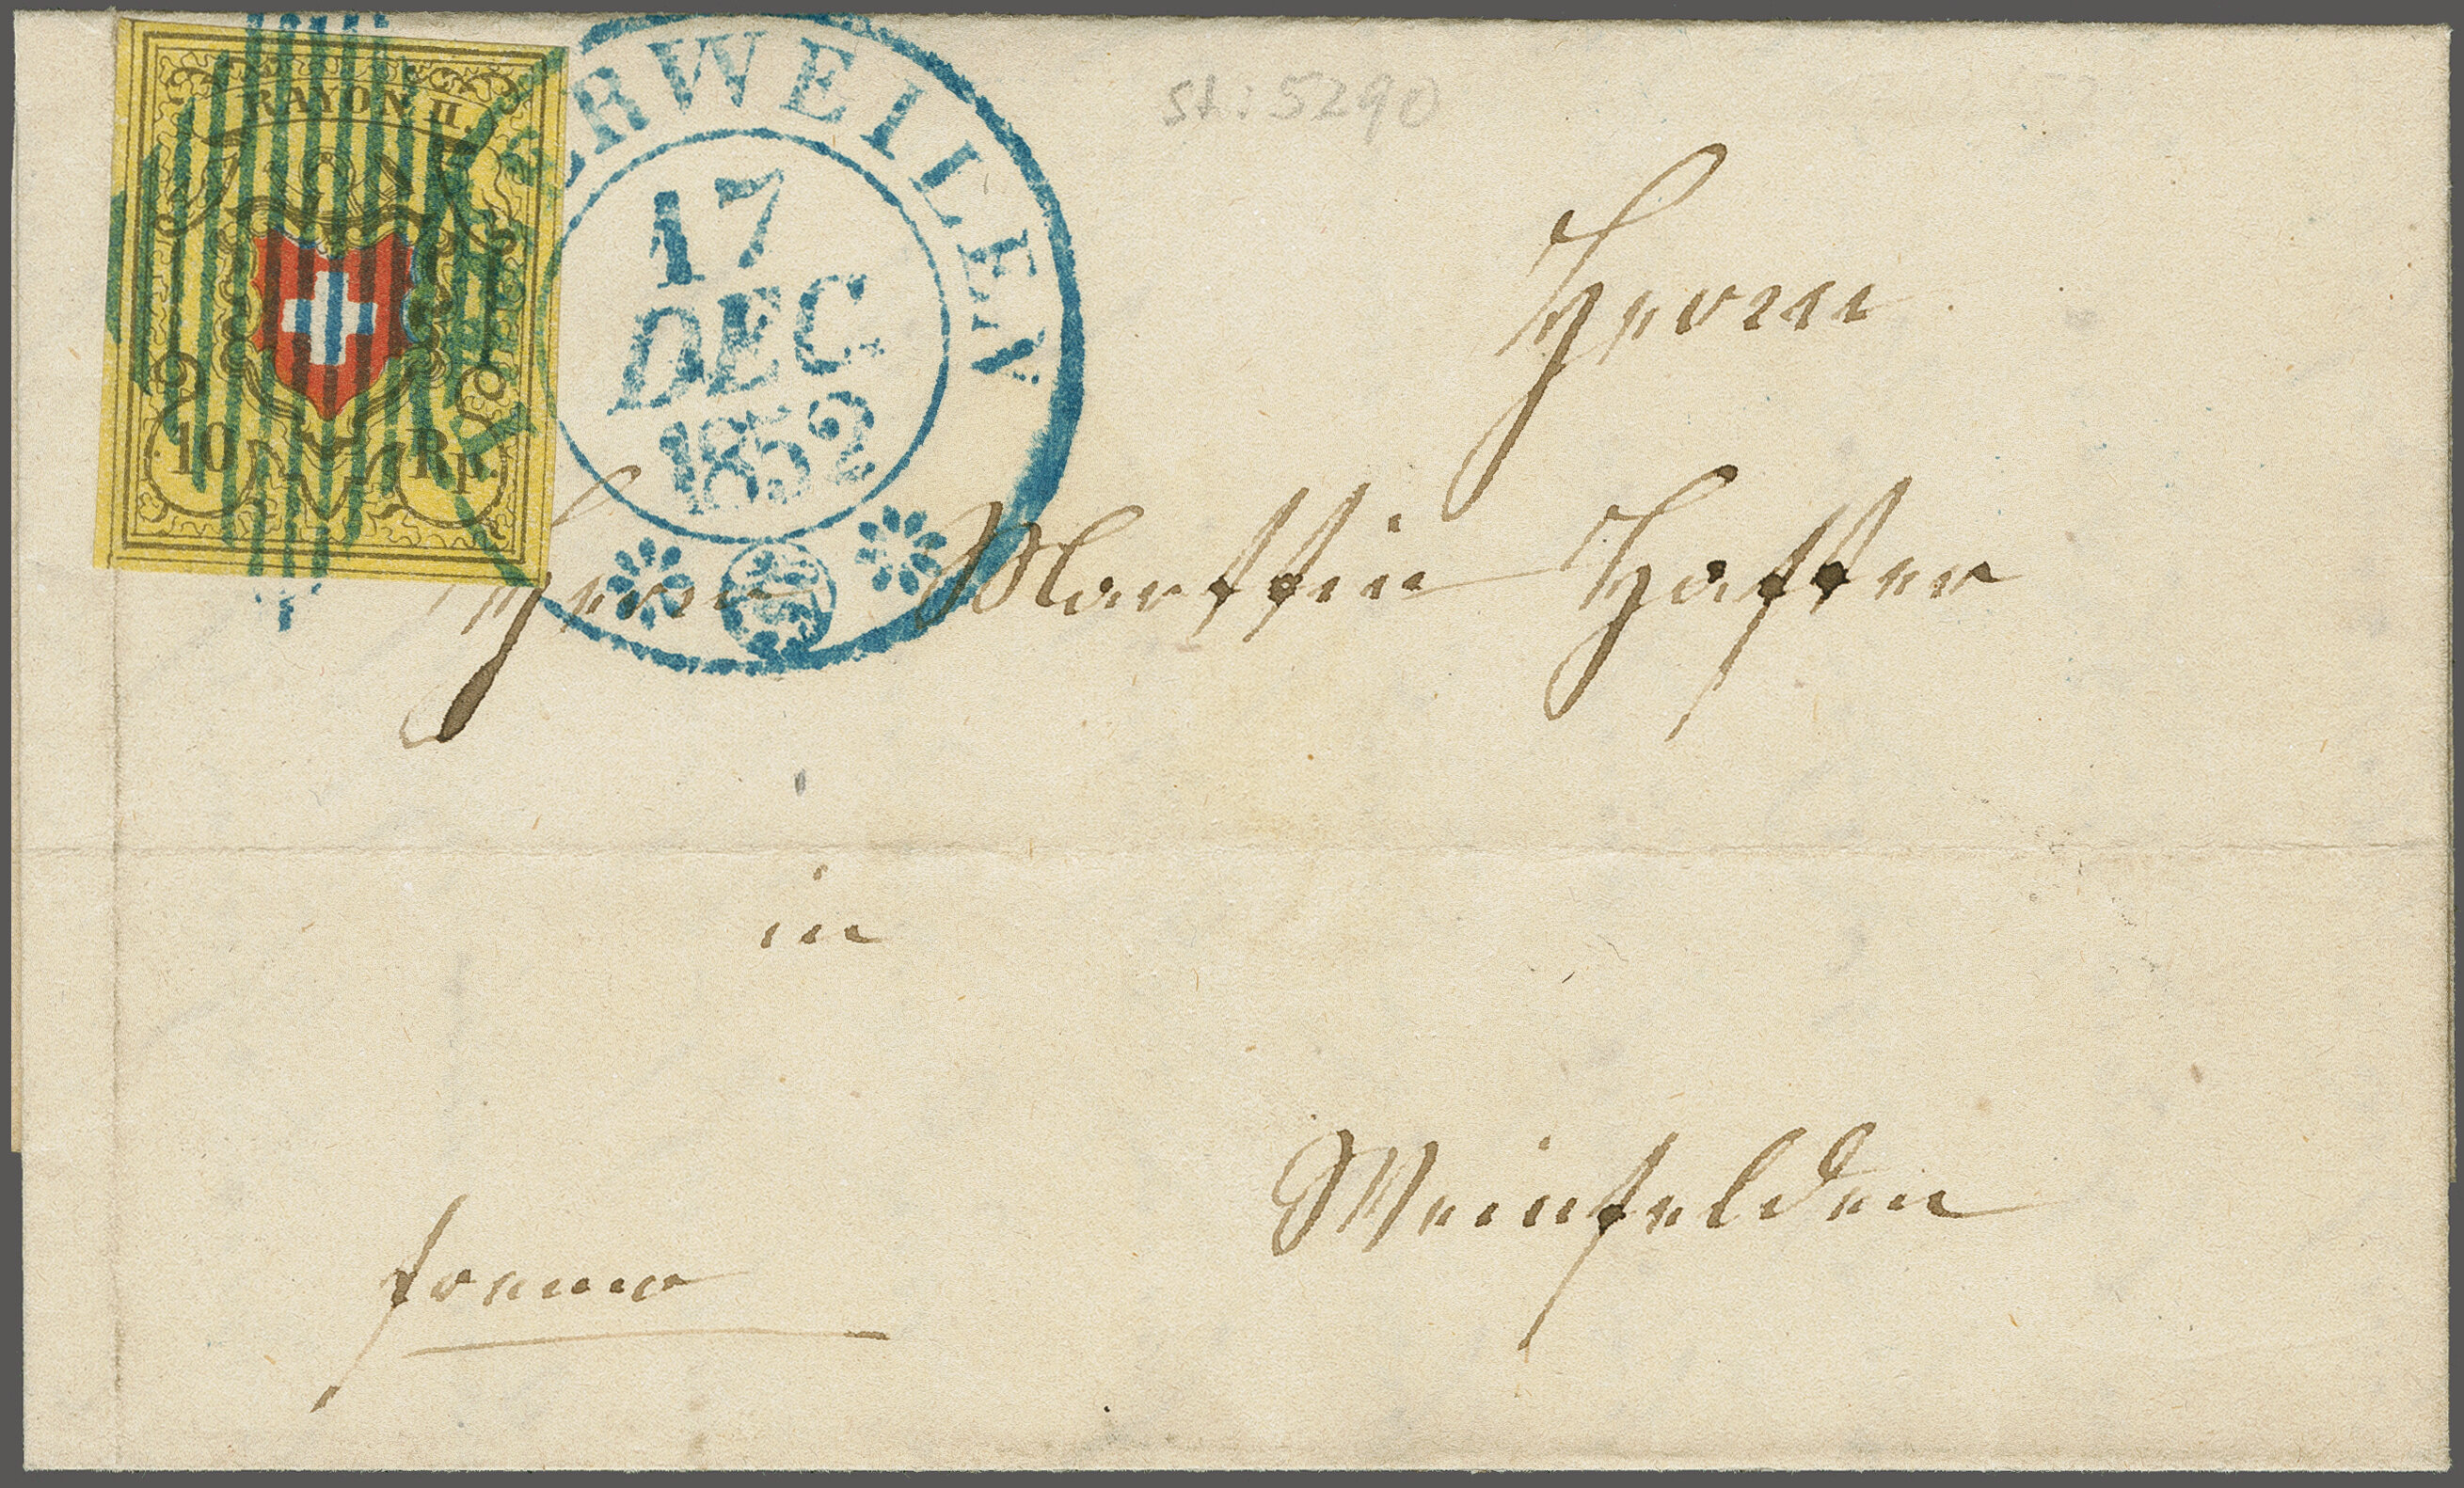 RAYON II.
10 Rp.
ERWEILEN
17
DEC
1852
St: 5290
Herrn
Herrn Martin Hafter
in
Weinfelden
franco